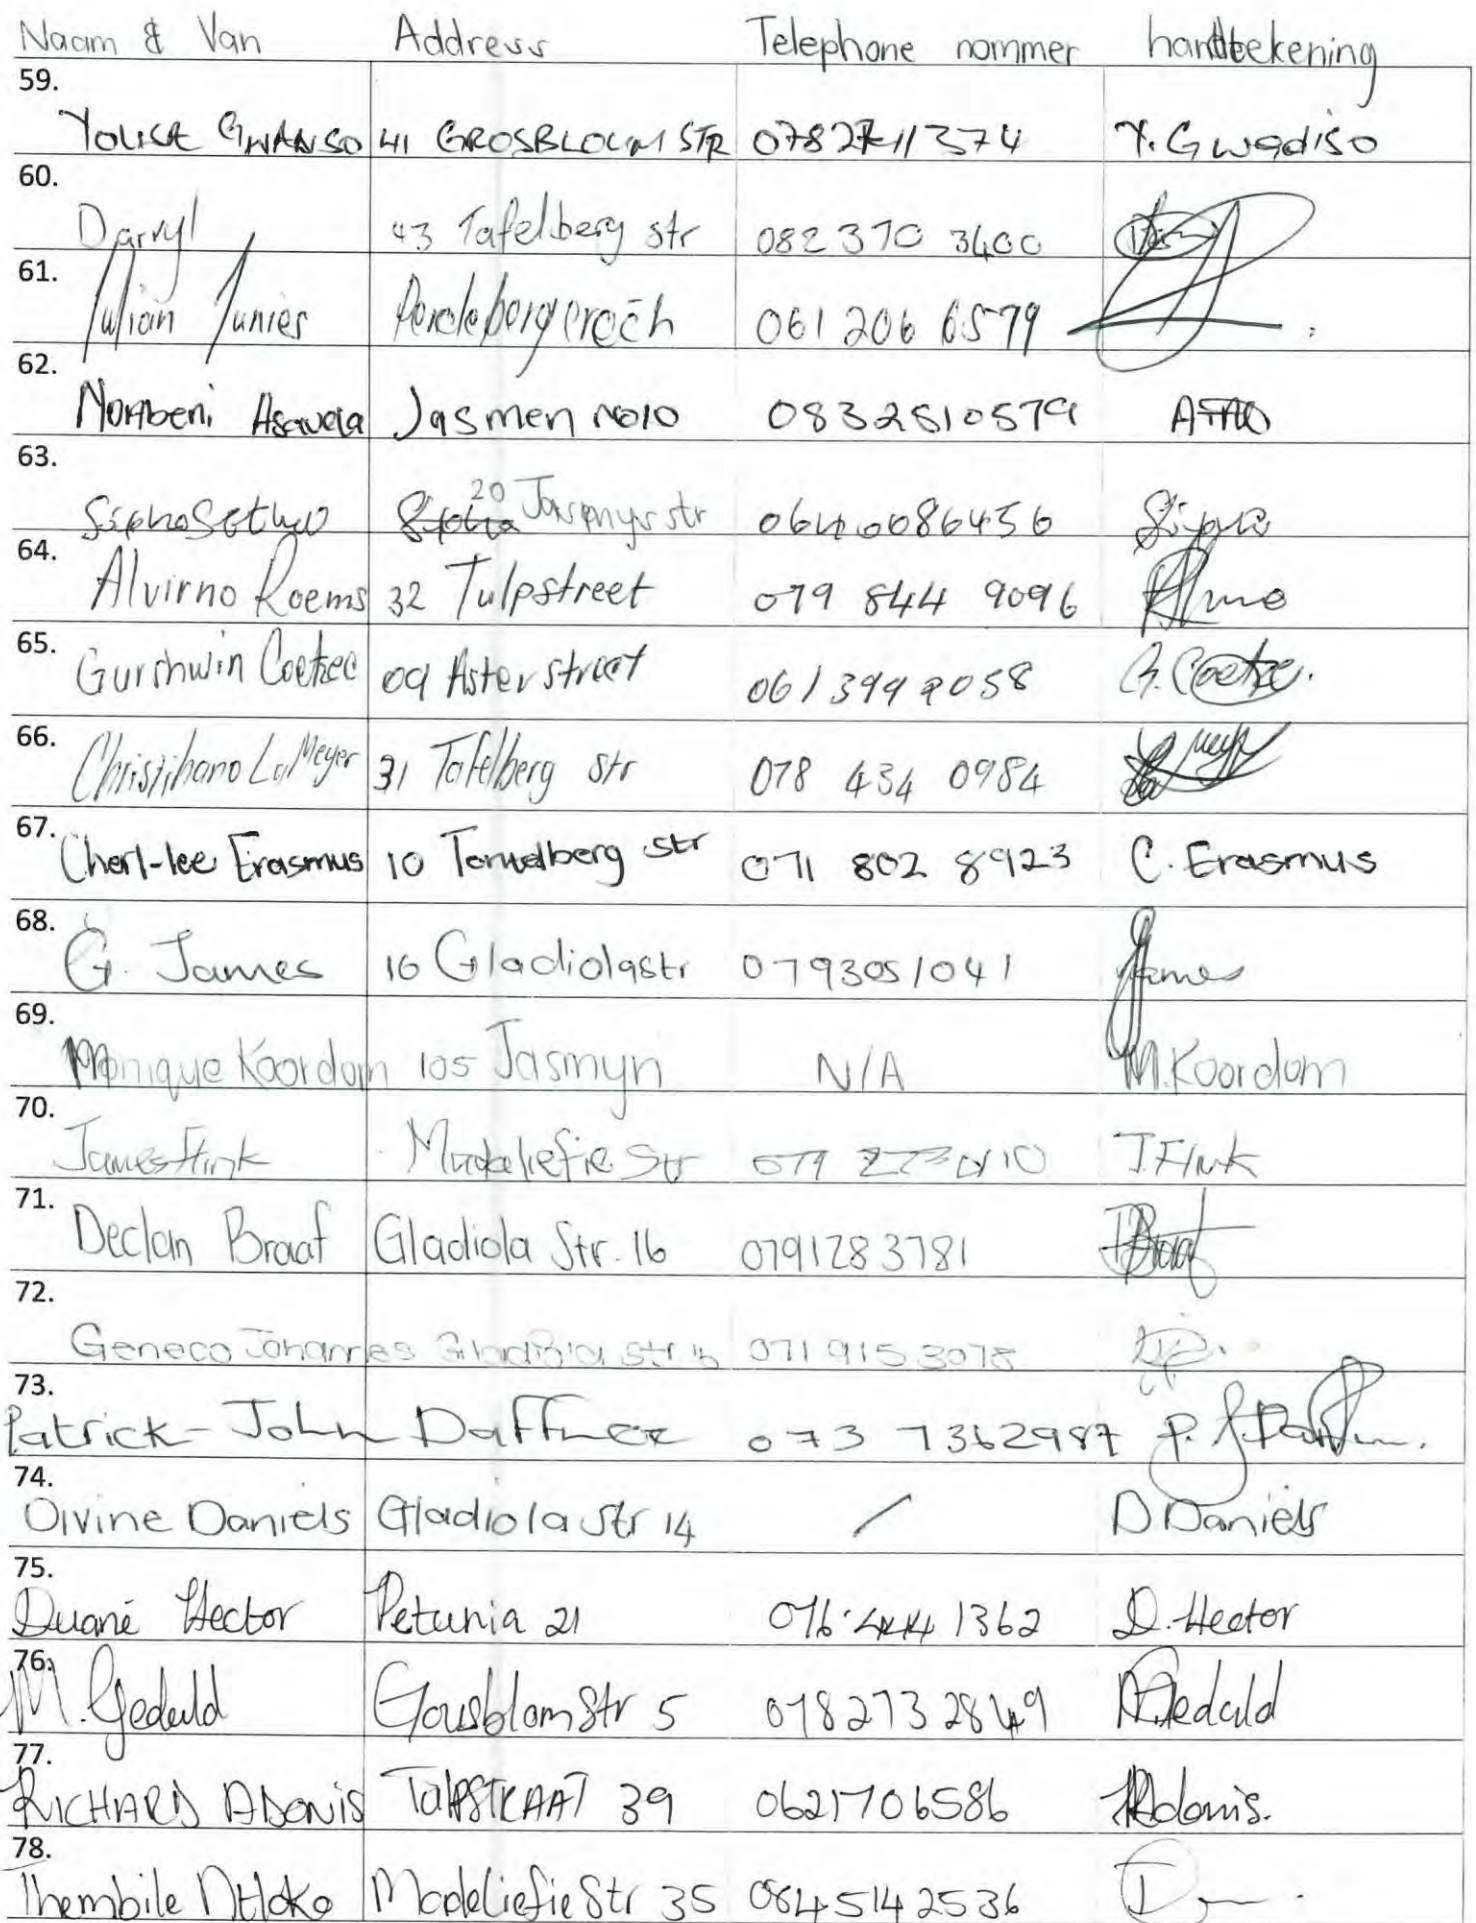 Naam & Van Address Telephone nommer handtekening
59.
GWANSO 41 GROSBLOUM STR Y. Gwadiso
60.
Darryl 43 Tafelberg str 082 370 3400
61.
Julian Junies 061 206 6579
62.
Jasmen no10 0832810579
63.
20 str
64.
Alvirno Roems 32 Tulpstreet 079 844 9096
65.
Gurshwin Coetzee 09 Aster street G. Coetzee.
66.
Meyer 31 Tafelberg str 078 434 0984
67.
Cherl-lee Erasmus 10 str 071 802 8923 C. Erasmus
68.
G. James 16 Gladiolastr 0793051041 James
69.
Monique Koordom 105 Jasmyn N/A M. Koordom
70.
James Flink Madeliefie Str J. Flink
71.
Declan Braaf Gladiola Str. 16 0791283781 Braaf
72.
Geneco Johannes Gladiola str 071 915 3078
73.
Patrick-John 073 7362987
74.
Divine Daniels Gladiola Str 14 / D Daniels
75.
Duané Hector Petunia 21 076 444 1362 D. Hector
76.
M. Geduld Gousblom Str 5 0782732849 M. Geduld
77.
RICHARD ADONIS TULPSTRAAT 39 0621706586 R Adonis.
78.
Thembile Ntloko Madeliefie Str 35 0845142536